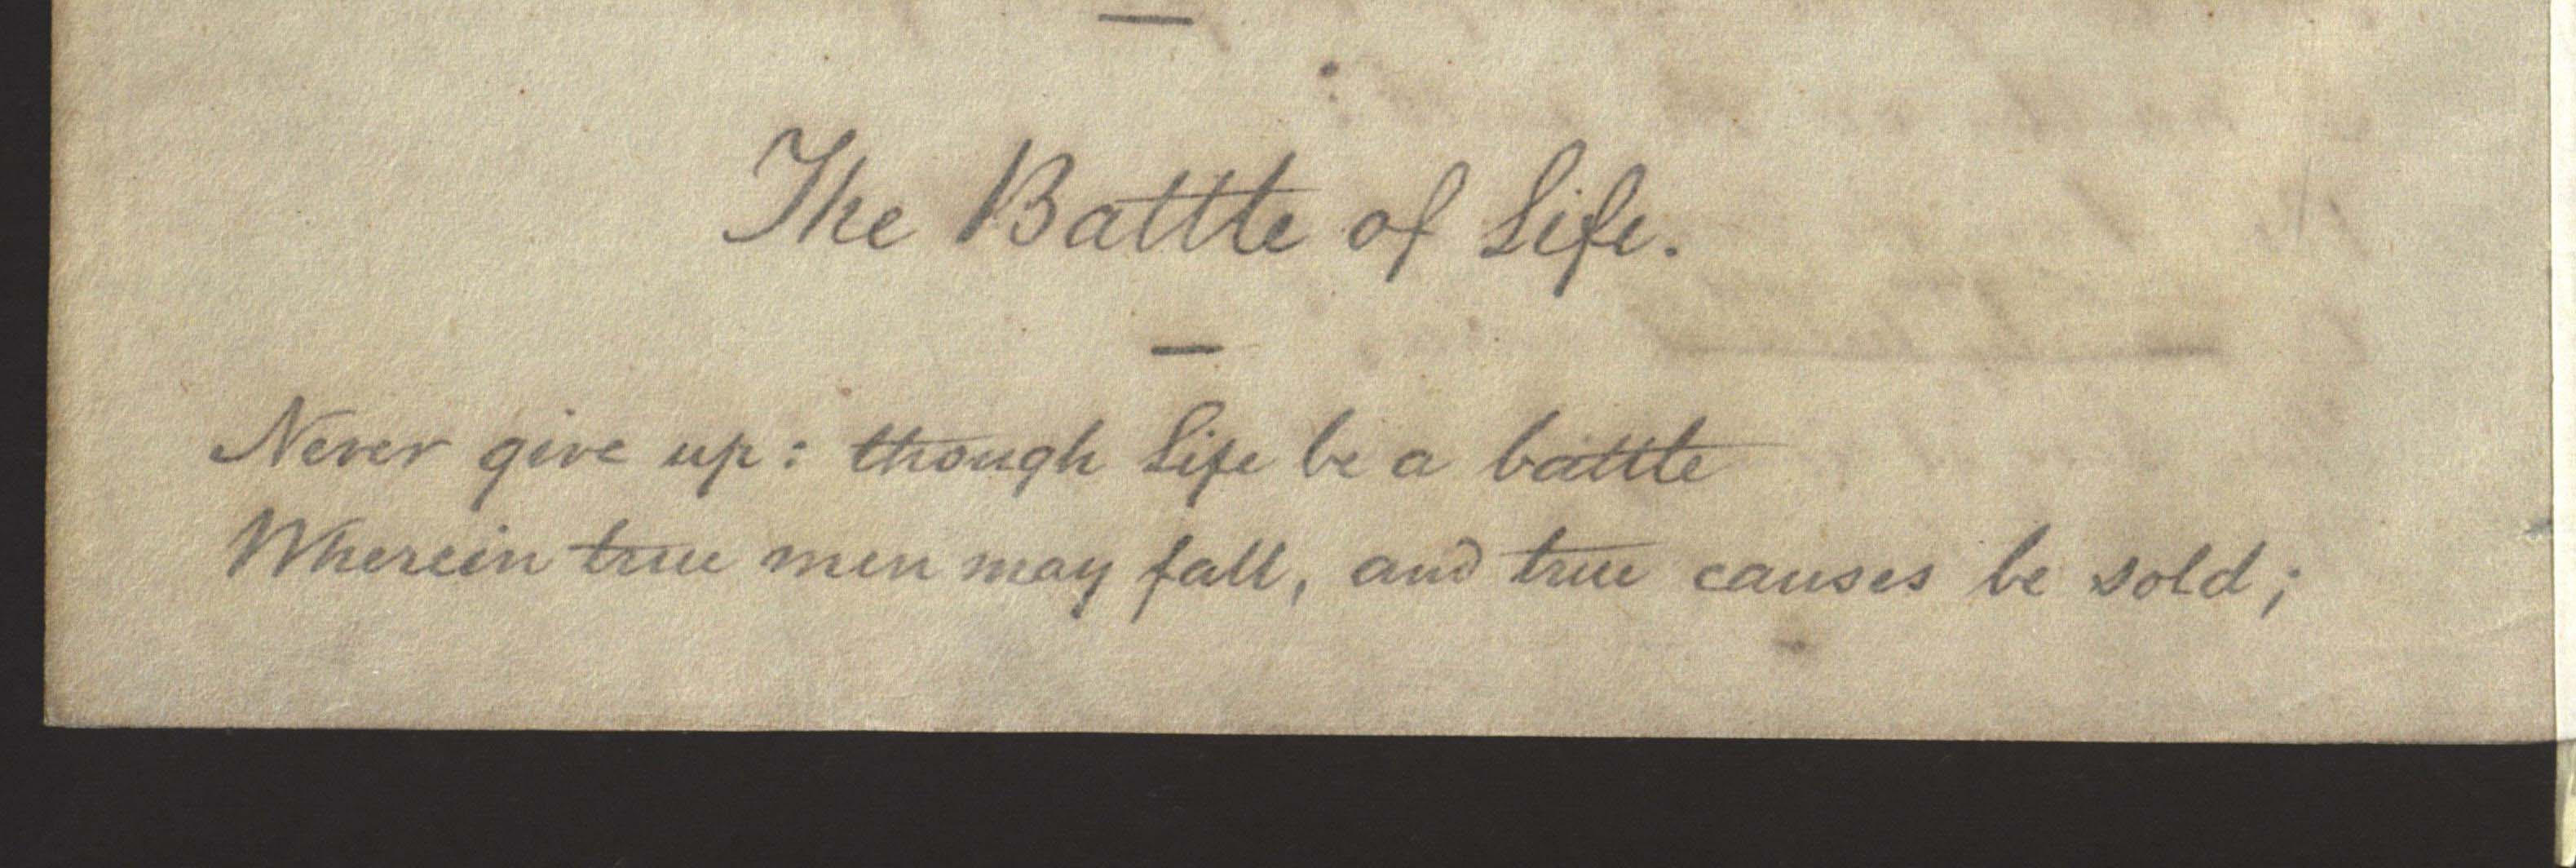 The Battle of Life.
Never give up: though Life be a battle
Wherein true men may fall, and true causes be sold;